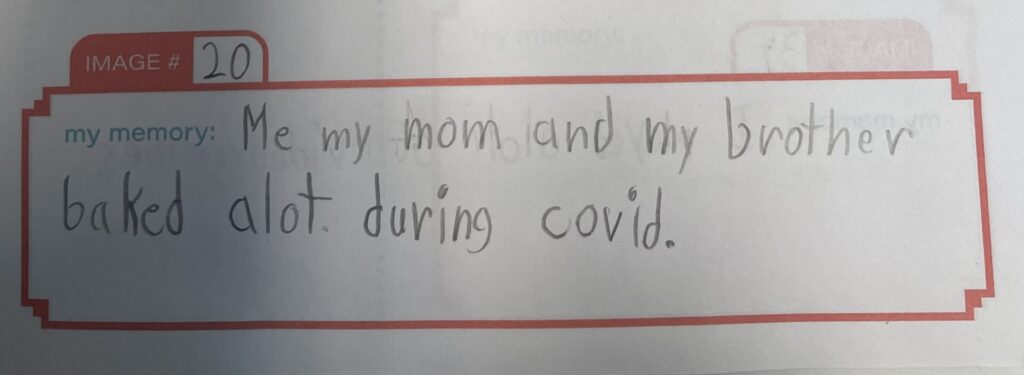 IMAGE # 20
my memory: Me my mom and my brother
baked alot. during covid.